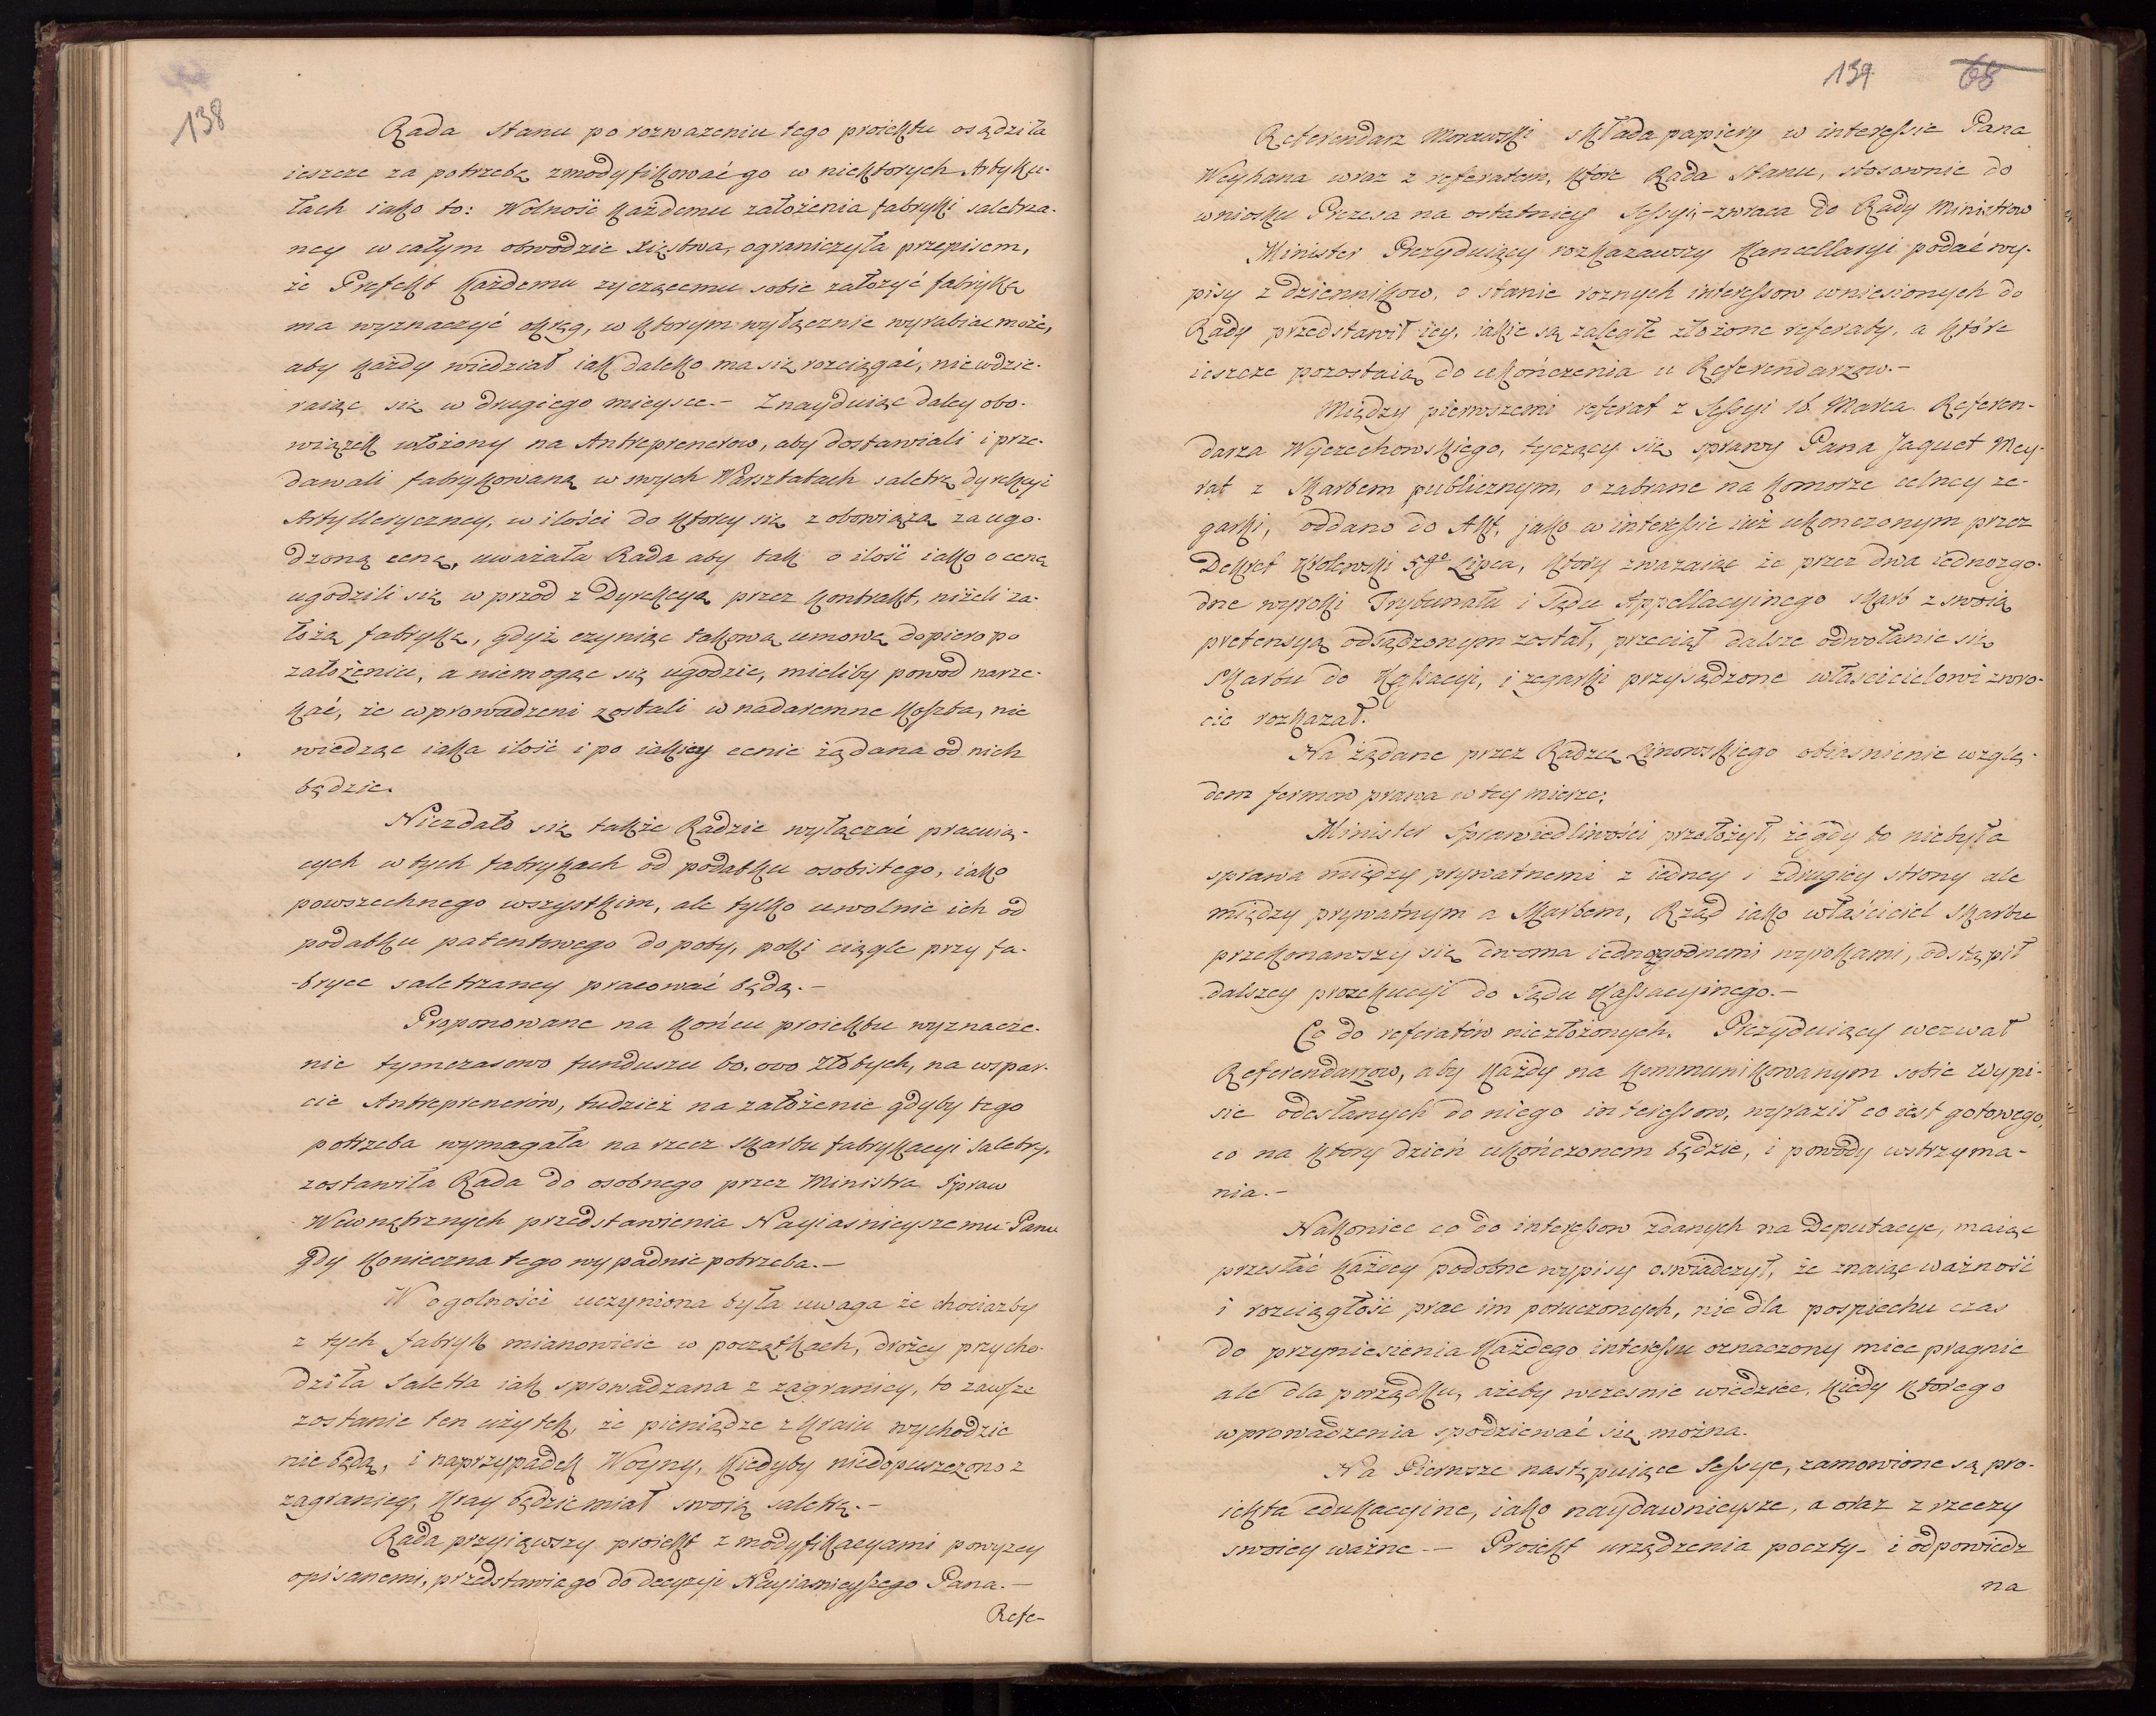 138
Rada Stanu po rozwazeniu tego proiektu osądziła
ieszcze za potrzebę zmodyfikować go w niektorych Artyku-
łach iako to: Wolność każdemu założenia fabryki saletrza-
ney w całym obwodzie Xięstwa, ograniczyła przepisem,
że Prefekt każdemu zyczącemu sobie założyć fabrykę
ma wyznaczyć okręg, w ktorym wyłącznie wyrabiac może,
aby każdy wiedział iak daleko ma się rozciągać, niewdzie-
raiąc się w drugiego mieysce.- Znayduiąc daley obo-
wiązek włożony na Antreprenerow, aby dostawiali i prze-
dawali fabrykowaną w swych Warsztatach saletrę dyrekcyi
Artylleryczney, w ilości do ktorey się zobowiążą za ugo-
dzoną cenę, uważała Rada aby tak o ilość iako o cenę
ugodzili się w przód z Dyrekcyą przez kontrakt, niżeli za-
łożą fabrykę, gdyż czyniąc takową umowę dopiero po
założeniu, a niemogąc się ugodzic, mieliby powod narze-
kać, że wprowadzeni zostali w nadaremne koszta, nie
wiedząc iaka ilość i po iakiey cenie żądana od nich
będzie.
Niezdało się także Radzie wyłączać pracuią-
cych w tych fabrykach od podatku osobistego, iako
powszechnego wszystkim, ale tylko uwolnic ich od
podatku patentowego do poty, poki ciągle przy fa-
-bryce saletrzaney pracować będą.-
Proponowane na końcu proiektu wyznacze-
nie tymczasowo funduszu 60,000 Złotych, na wspar-
cie Antreprenerów, tudzież na założenie gdyby tego
potrzeba wymagała na rzecz skarbu fabrykacyi saletry,
zostawiła Rada do osobnego przez Ministra Spraw
Wewnętrznych przedstawienia Nayiasnieyszemu Panu
gdy konieczna tego wypadnie potrzeba.-
W ogolności uczyniona była uwaga że chociazby
z tych fabryk mianowicie w początkach, drożey przycho-
dziła Saletra iak sprowadzana z zagranicy, to zawsze
zostanie ten użytek, że pieniądze z kraiu wychodzic
nie będą, i naprzypadek Woyny, kiedyby niedopuszczono z
zagranicy, kray będzie miał swoią saletrę.-
Rada przyiąwszy proiekt z modyfikacyami powyzey
opisanemi, przedstawia go do decyzyi Nayiasnieyszego Pana.-
Refe-
139 68
Referendarz Morawski składa papiery w interessie Pana
Weyhana wraz z referatem, ktore Rada Stanu, stosownie do
wniosku Prezesa na ostatniey Sessyi-zwraca do Rady Ministrow
Minister Prezyduiący rozkazawszy Kancellaryi podać wy-
pisy z dziennikow, o stanie roznych interessow wniesionych do
Rady przedstawił iey, iakie są zaległe złożone referaty, a które
ieszcze pozostaią do ukończenia u Referendarzow.-
Między pierwszemi referat z Sessyi 16. Marca Referen-
darza Wyczechowskiego, tyczący się sprawy Pana Jaquet Mey-
rat z Skarbem publicznym, o zabrane na komorze celney ze-
garki, oddano do Akt, jako w interessie iuż ukonczonym przez
Dekret Krolewski 5go Lipca, ktory zwazaiąc że przez dwa iednozgo-
dne wyroki Trybunału i Sądu Appellacyinego skarb z swoią
pretensyą odsądzonym został, przeciął dalsze odwołanie się
Skarbu do Kassacyi, i zegarki przysądzone właścicielowi zwro-
cic rozkazał.
Na żądane przez Radzcę Linowskiego obiasnienie wzglę-
dem formow prawa w tey mierze,
Minister Sprawiedliwości przełożył, że gdy to niebyła
sprawa między prywatnemi z iedney i zdrugiey strony ale
między prywatnym a Skarbem, Rząd iako właściciel Skarbu
przekonawszy się dwoma iednozgodnemi wyrokami, odstąpił
dalszey prozekucyi do Sądu Kassacyinego.-
Co do referatów niezłożonych. Prezyduiący wezwał
Referendarzow, aby każdy na kommunikowanym sobie wypi-
sie odesłanych do niego interessow, wyraził co iest gotowego,
co na ktory dzień ukończonem będzie, i powody wstrzyma-
nia.-
Nakoniec co do interessow zdanych na Deputacye, maiąc
przesłać każdey podobne wypisy oswiadczył, że znaiąc ważność
i rozciągłość prac im poruczonych, nie dla pospiechu czas
do przyniesienia każdego interessu oznaczony miec pragnie
ale dla porządku, ażeby wczesnie wiedziec, kiedy którego
wprowadzenia spodziewać się można.
Na Pierwsze następuiące Sessye, zamowione są pro-
iekta edukacyine, iako naydawnieysze, a oraz z rzeczy
swoiey ważne.- Proiekt urządzenia poczty- i odpowiedz
na